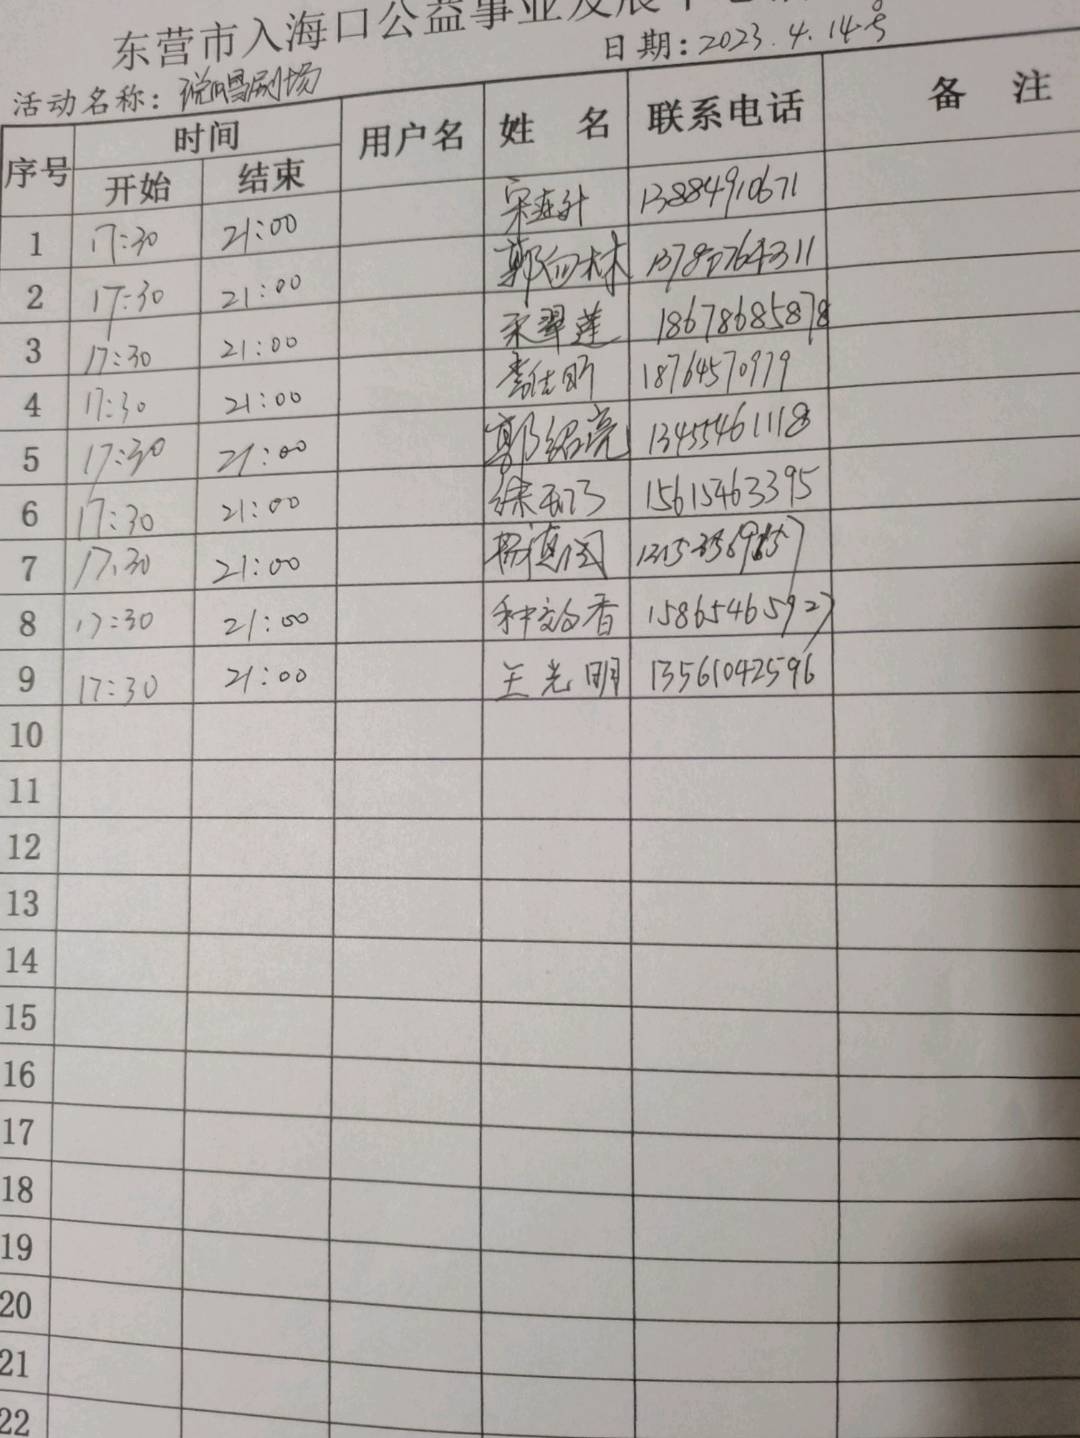 东营市入海口公益事业发展中心
日期:2023.4.14号
活动名称:说唱剧场
序号 时间 用户名 姓 名 联系电话 备 注
开始 结束
1 17:30 21:00 宋连升 13884910671
2 17:30 21:00 郭向林
3 17:30 21:00 宋翠莲 18678685878
4 17:30 21:00 18764570979
5 17:30 21:00 郭绍亮 13455461118
6 17:30 21:00 15615463395
7 17:30 21:00 杨德国
8 17:30 21:00 种文香 15865465927
9 17:30 21:00 王光明 13561042596
10
11
12
13
14
15
16
17
18
19
20
21
22